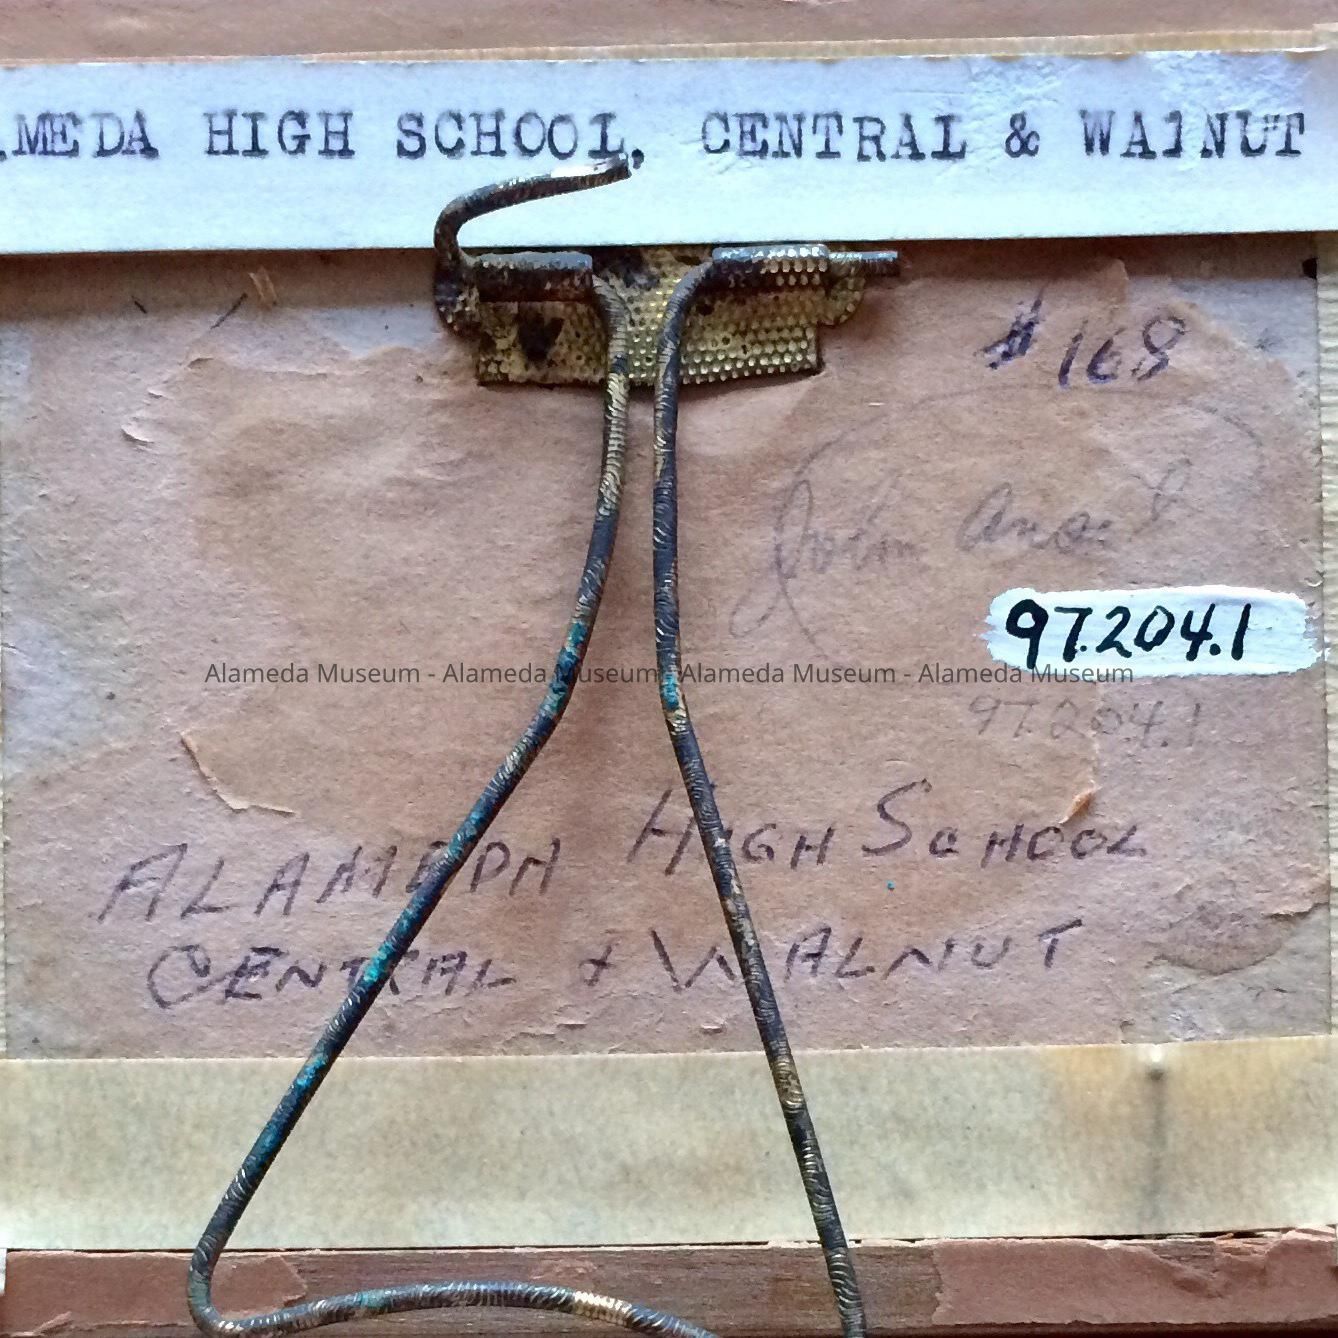 AMEDA HIGH SCHOOL, CENTRAL & WA1NUT
# 168
John
97.204.1
Alameda Museum - Alameda Museum - Alameda Museum - Alameda Museum
97.204.1
ALAMEDA HIGH SCHOOL
CENTRAL & WALNUT